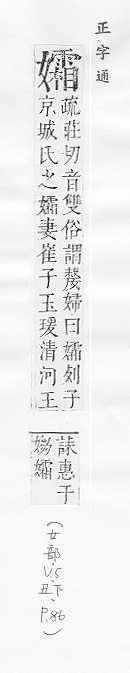 正字通
孀
疏莊切音雙俗謂嫠婦曰孀列子
京城氏之孀妻崔子玉瑗清河王
誄惠于
嫠孀
(女部.V.5.丑下.P.86)